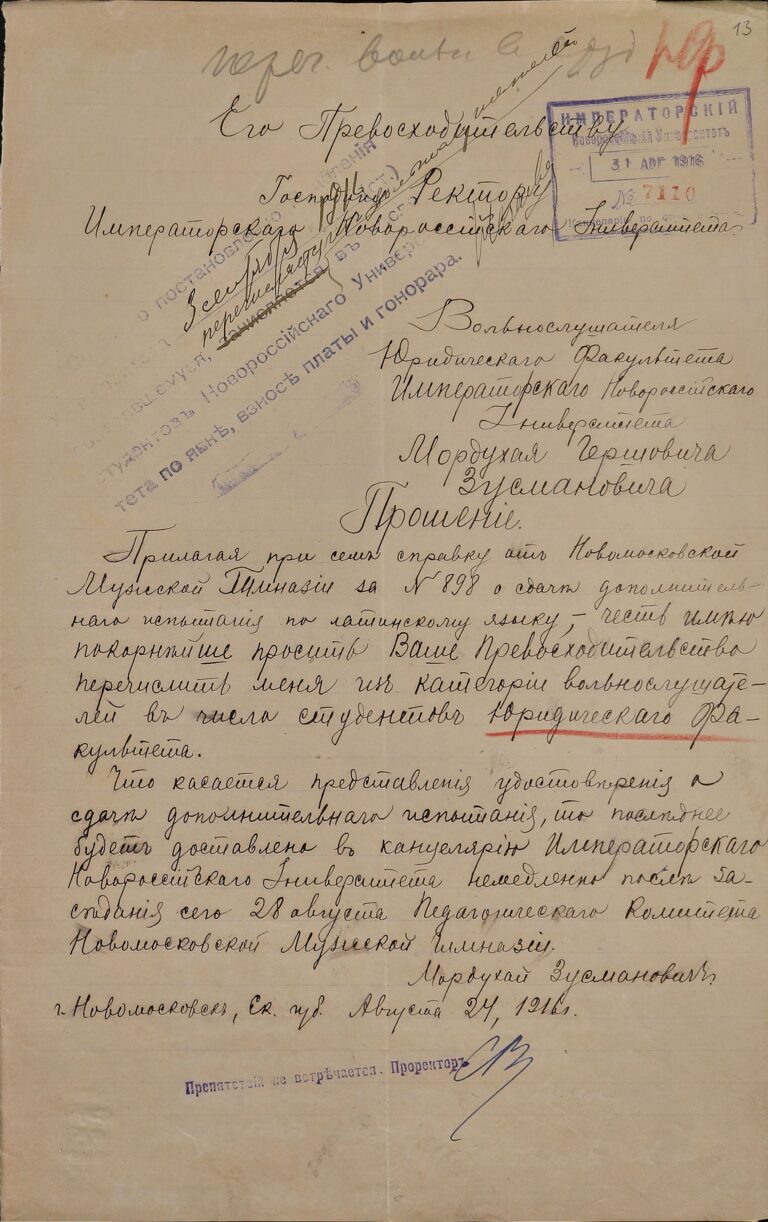 13
Его Превосходительству
Господину Ректору
Императорскаго Новороссійскаго Университета
ИМПЕРАТОРСКІЙ
Новороссійскій Университетъ
31 АВГ 1916
№ 7110
Канцелярія по
постановленію
студентовъ Новороссійскаго Универси-
тета по явкѣ, взносѣ платы и гонорара.
Вольнослушателя
Юридическаго Факультета
Императорскаго Новороссійскаго
Университета
Мордухая Гершовича
Зусмановича
Прошеніе.
Прилагая при семъ справку отъ Новомосковской
Мужской Гимназіи за № 898 о сдачѣ дополнитель-
наго испытанія по латинскому языку, – честь имѣю
покорнѣйше просить Ваше Превосходительство
перечислить меня изъ категоріи вольнослушате-
лей въ число студентовъ Юридическаго Фа-
культета.
Что касается представленія удостовѣренія о
сдачѣ дополнительнаго испытанія, то послѣднее
будетъ доставлено въ канцелярію Императорскаго
Новороссійскаго Университета немедленно послѣ за-
сѣданія сего 28 августа Педагогическаго Комитета
Новомосковской Мужской Гимназіи.
Мордухай Зусмановичъ.
г. Новомосковскъ, Ек. губ. Августа 24, 1916 г.
Препятствій не встрѣчается. Проректоръ